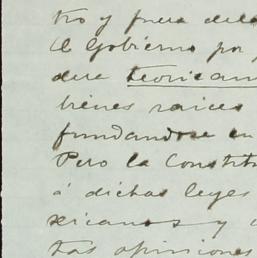 tro y fuera de la
El Gobierno por
dera teoricam
bienes raices
fundandose en
Pero la Constit
á dichas leyes
xicanos y
tas opiniones